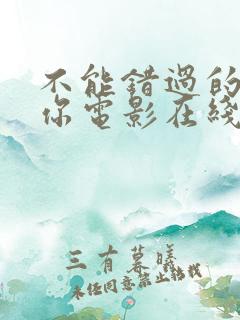 不能錯過的
你電影在綫
三有暮曦
未经同意禁止转载